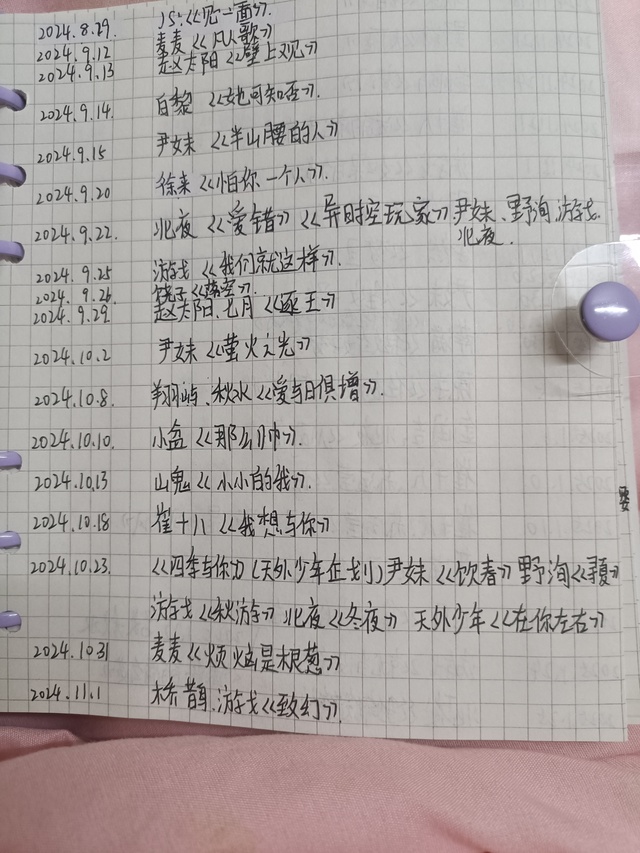 2024.8.29. 15:《见一面》.
2024.9.12 麦麦《凡人歌》
2024.9.13 赵太阳《壁上观》
2024.9.14. 白黎《她可知否》.
2024.9.15 尹妹《半山腰的人》
2024.9.20 徐来《怕你一个人》.
2024.9.22. 北夜《爱错》《异时空玩家》尹妹、野洵、游戈.
北夜.
2024.9.25 游戈《我们就这样》.
2024.9.26 饶子《落空》.
2024.9.29. 赵太阳、七月《逐王》
2024.10.2 尹妹《萤火之光》
2024.10.8. 翔屿、秋水《爱与日俱增》.
2024.10.10. 小盆《那么帅》.
2024.10.13 山鬼《小小白的我》.
2024.10.18 崔十八《我想与你》
2024.10.23. 《四季与你》(天外少年企划) 尹妹《饮春》 野洵《寻夏》
游戈《秋游》 北夜《冬夜》 天外少年《在你左右》
2024.10.31 麦麦《烦恼是根葱》
2024.11.1 桥鹊、游戈《致幻》